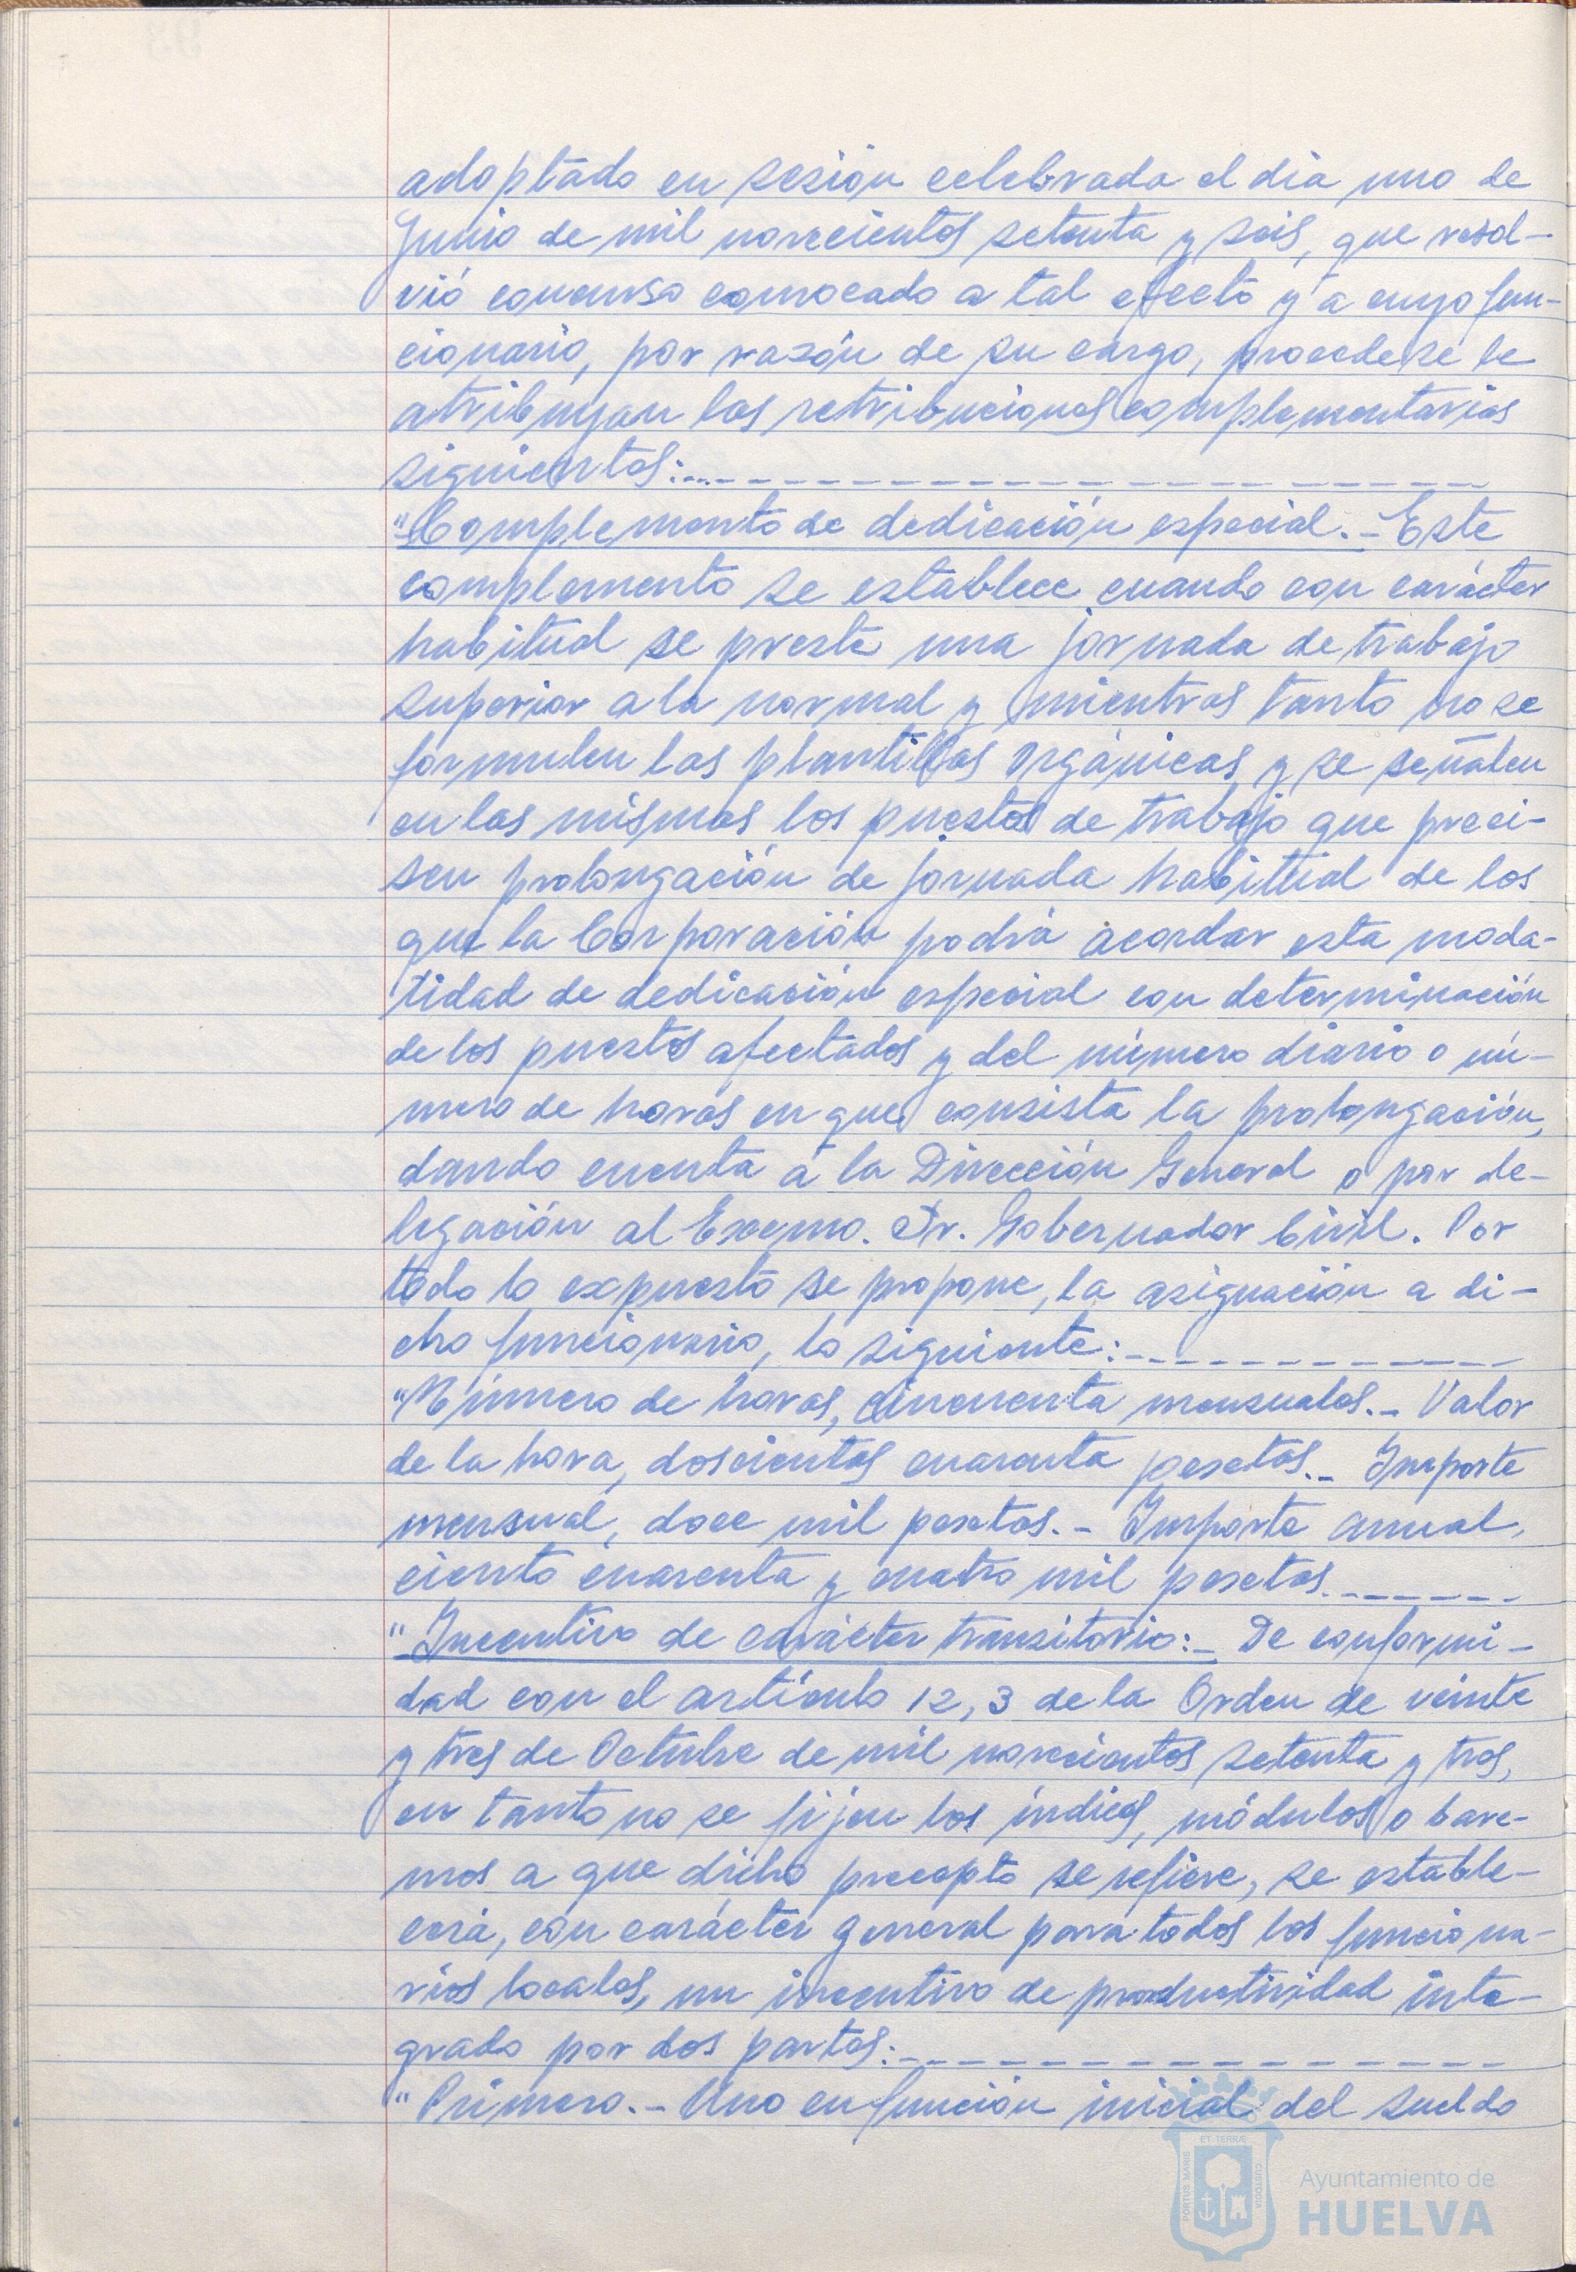 adoptado en sesión celebrada el día uno de
Junio de mil novecientos setenta y seis, que resol-
vió concurso convocado a tal efecto y a cuyo fun-
cionario, por razón de su cargo, procede se le
atribuyan las retribuciones complementarias
siguientes:
"Complemento de dedicación especial.- Este
complemento se establece cuando con carácter
habitual se preste una jornada de trabajo
superior a la normal y mientras tanto no se
formulen las plantillas orgánicas y se señalen
en las mismas los puestos de trabajo que preci-
sen prolongación de jornada habitual de los
que la Corporación podrá acordar esta moda-
lidad de dedicación especial con determinación
de los puestos afectados y del número diario o nú-
mero de horas en que consista la prolongación,
dando cuenta a la Dirección General o por de-
legación al Excmo. Sr. Gobernador Civil. Por
todo lo expuesto se propone, la asignación a di-
cho funcionario, lo siguiente:
"Número de horas, cincuenta mensuales.- Valor
de la hora, doscientas cuarenta pesetas.- Importe
mensual, doce mil pesetas.- Importe anual,
ciento cuarenta y cuatro mil pesetas.
"Incentivo de carácter transitorio:- De conformi-
dad con el artículo 12,3 de la Orden de veinte
y tres de Octubre de mil novecientos setenta y tres,
en tanto no se fijen los índices, módulos o bare-
mos a que dicho precepto se refiere, se estable-
cerá, con carácter general para todos los funciona-
rios locales, un incentivo de productividad inte-
grado por dos partes:
"Primero.- Uno en función inicial del sueldo
PORTUS MARIS
ET TERRÆ
CUSTODIA
Ayuntamiento de
HUELVA